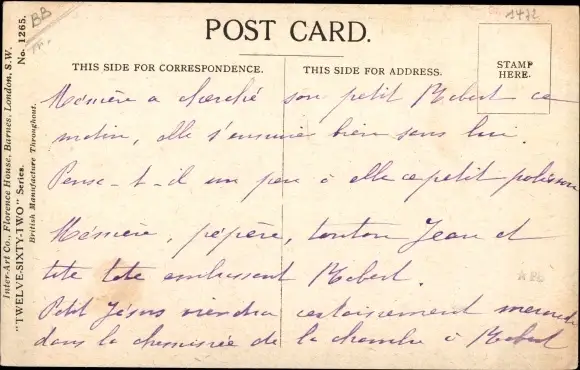 BB
1472
POST CARD.
THIS SIDE FOR CORRESPONDENCE.
THIS SIDE FOR ADDRESS.
STAMP
HERE.
Mémère a cherché son petit Robert ce
matin, elle s'ennuie bien sans lui.
Pense-t-il un peu à elle ce petit polisson
Mémère, pépère, tonton Jean et
tite tote embrassent Robert.
Petit Jésus viendra certainement mercredi
dans la cheminée de la chambre à Robert
Inter-Art Co., Florence House, Barnes, London, S.W.
"TWELVE-SIXTY-TWO" Series. No. 1265.
British Manufacture Throughout.